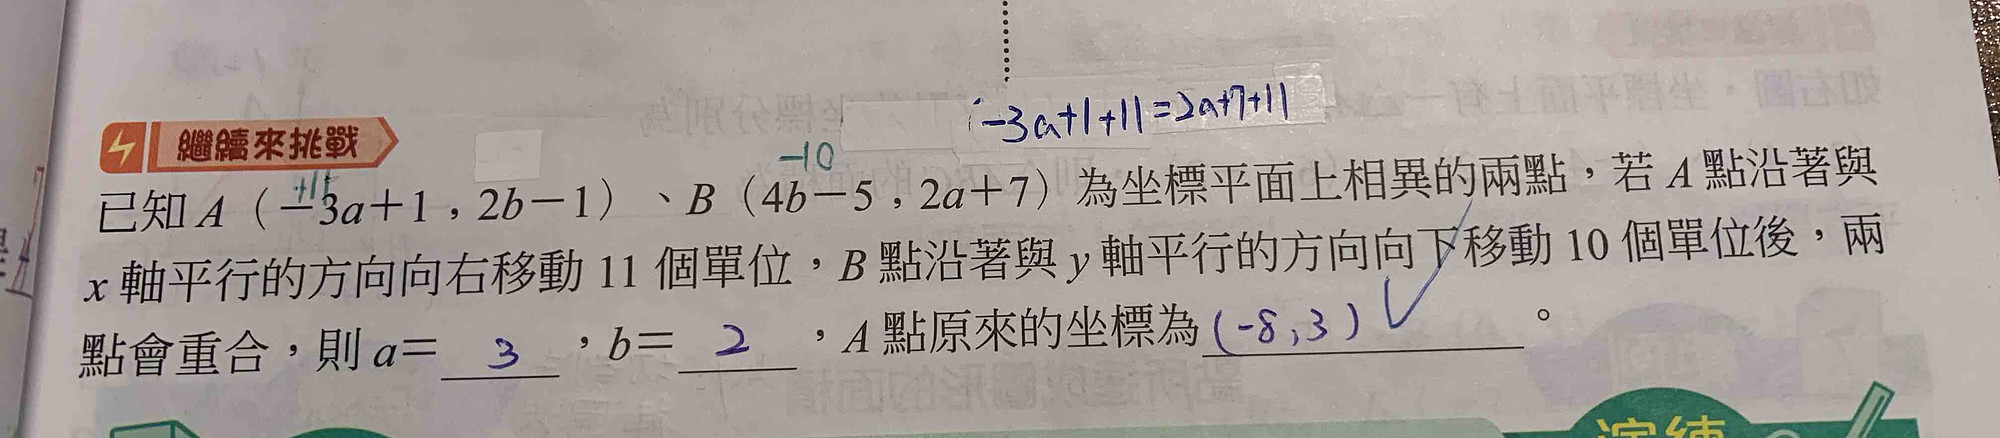 -3a+1+11=2a+7+11
繼續來挑戰
+11 -10
已知 A（－3a＋1，2b－1）、B（4b－5，2a＋7）為坐標平面上相異的兩點，若 A 點沿著與
x 軸平行的方向向右移動 11 個單位，B 點沿著與 y 軸平行的方向向下移動 10 個單位後，兩
點會重合，則 a＝ 3 ，b＝ 2 ，A 點原來的坐標為 (-8,3) 。
演練